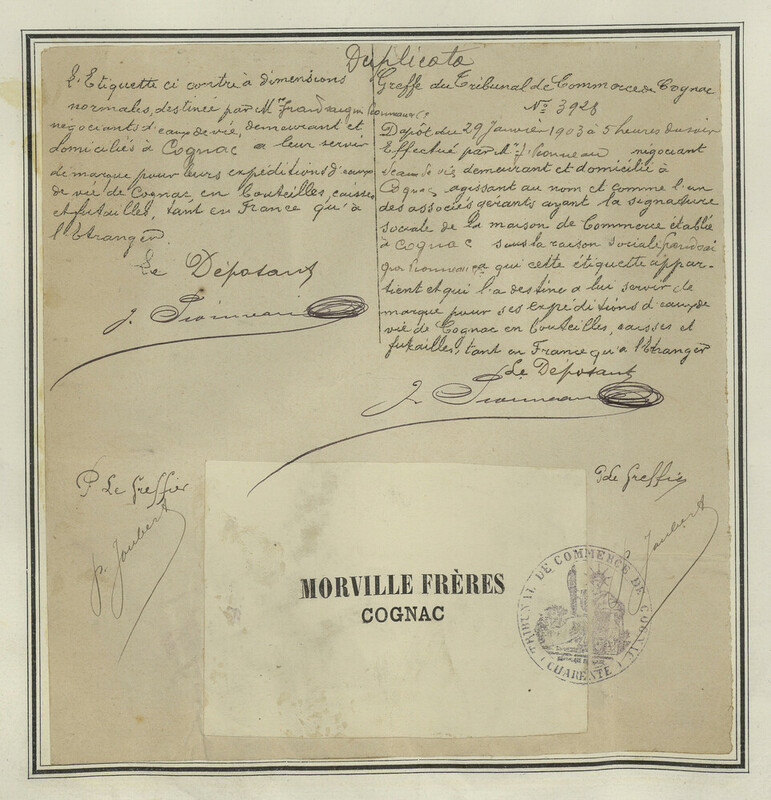 Duplicata
L'Etiquette ci contre à dimensions
normales, destinée par Mrs
négociants d'eaux de vie, demeurant et
domiciliés à Cognac a leur servir
de marque pour leurs expéditions d'eaux
de vie de Cognac en bouteilles, caisses
et futailles, tant en France qu'à
l'Etranger
Le Déposant
J.
Greffe du Tribunal de Commerce de Cognac
No 3928
Dépôt du 29 Janvier 1903 à 5 heures du soir
Effectué par Mr J. négociant
d'eaux de vie demeurant et domicilié à
Cognac, agissant au nom et comme l'un
des associés gérants ayant la signature
sociale de la maison de Commerce établie
à Cognac sous la raison sociale
qui cette étiquette appar-
tient et qui l'a destine a lui servir de
marque pour ses expéditions d'eaux de
vie de Cognac en bouteilles, caisses et
futailles, tant en France qu'a l'Etranger
Le Déposant
J.
P. Le Greffier
p. Joubert
P. Le Greffier
Joubert
MORVILLE FRÈRES
COGNAC
TRIBUNAL DE COMMERCE DE COGNAC
(CHARENTE)